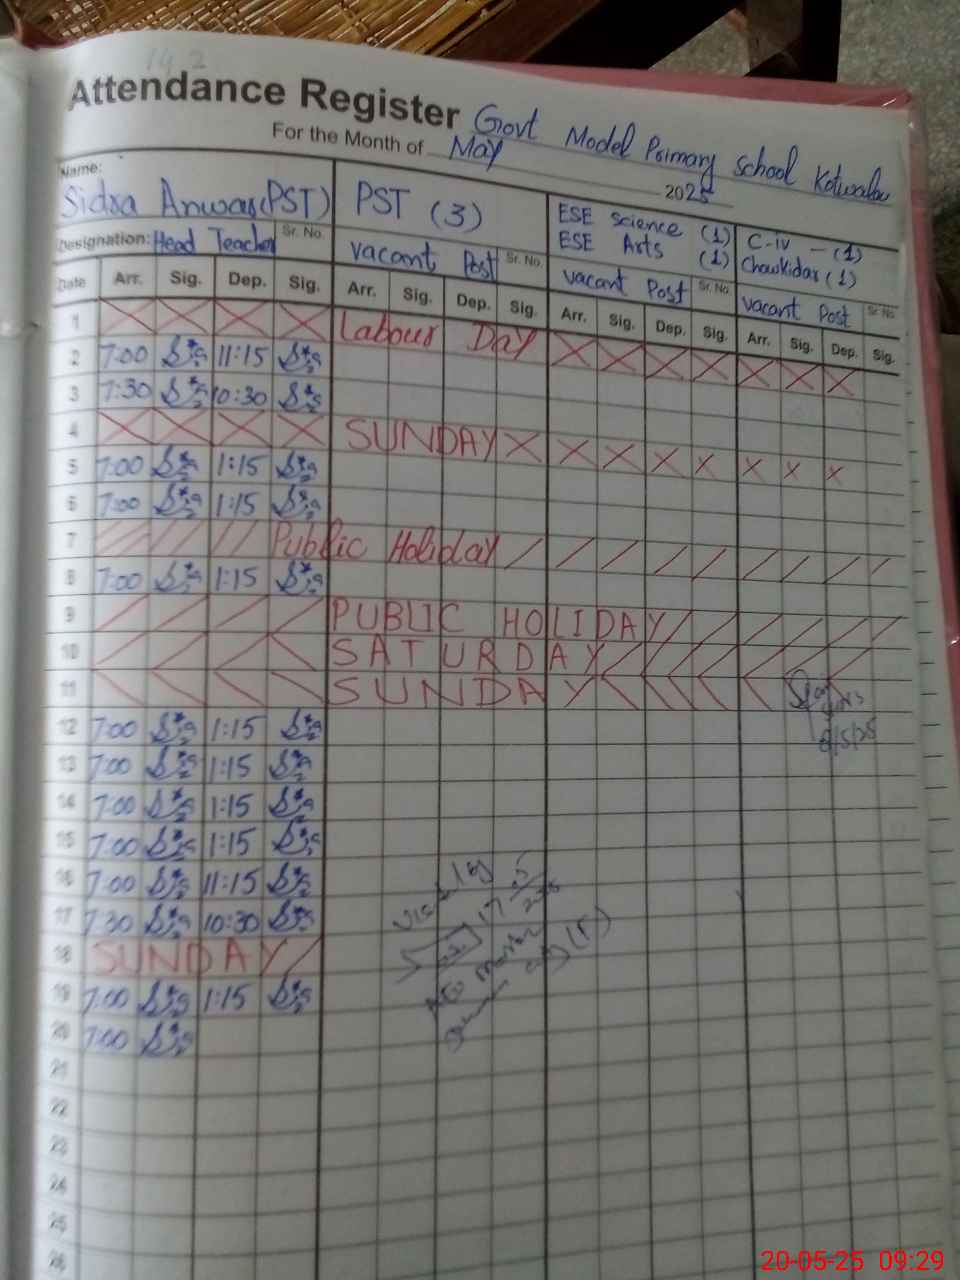 Attendance Register Govt Model Primary School Kotwalau
For the Month of May 2025
Name:
Sidra Anwar(PST) PST (3) ESE Science (1) C-iv - (1)
ESE Arts (1) Chowkidar (1)
Designation: Head Teacher Sr. No. vacant Post Sr. No. vacant Post Sr. No. vacant Post Sr. No.
Date Arr. Sig. Dep. Sig. Arr. Sig. Dep. Sig. Arr. Sig. Dep. Sig. Arr. Sig. Dep. Sig.
1 Labour Day
2 7:00 11:15
3 7:30 10:30
4 SUNDAY
5 7:00 1:15
6 7:00 1:15
7 Public Holiday
8 7:00 1:15
9 PUBLIC HOLIDAY
10 SATURDAY
11 SUNDAY
12 7:00 1:15
13 7:00 1:15
14 7:00 1:15
15 7:00 1:15
16 7:00 11:15
17 7:30 10:30
18 SUNDAY
19 7:00 1:15
20 7:00
21
22
23
24
25
26
8/5/25
17.5
2025
20-05-25 09:29